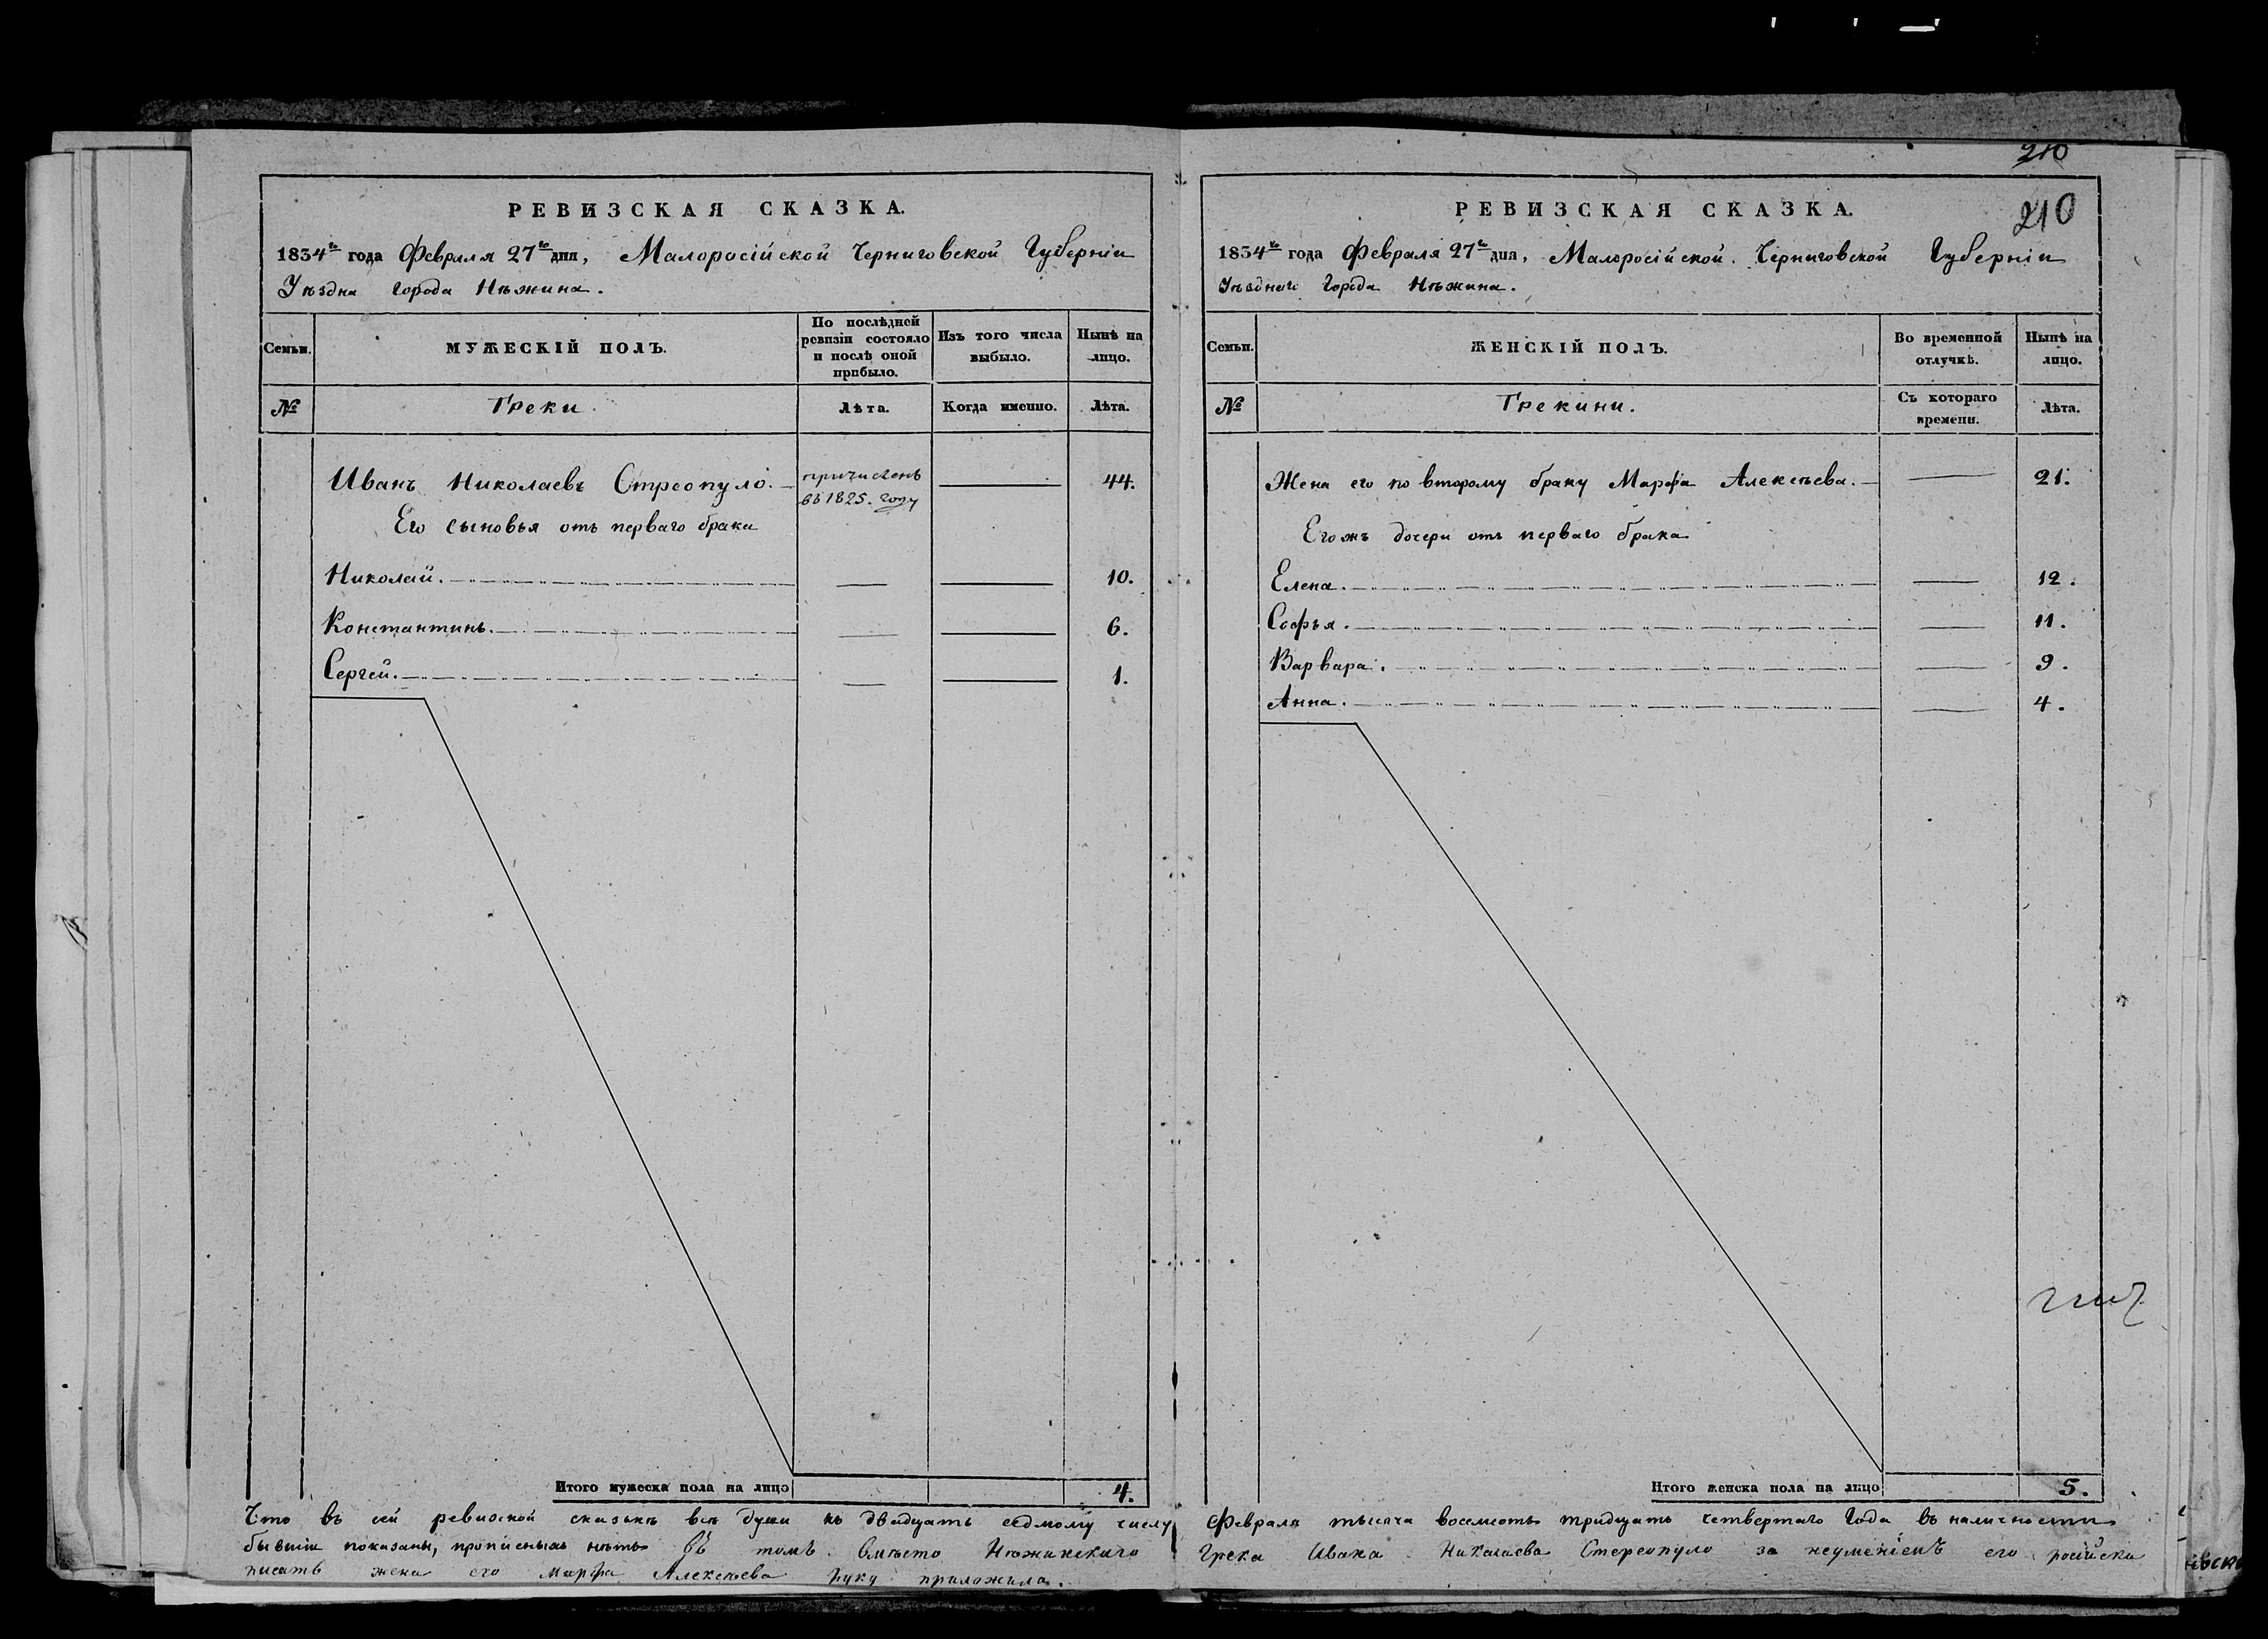 РЕВИЗСКАЯ СКАЗКА.
1834го года Февраля 27го дня, Малоросійской Черниговской Губерніи
Уѣздна города Нѣжина.
Семьи.
МУЖЕСКІЙ ПОЛЪ.
По послѣдней ревизіи состояло и послѣ оной прибыло.
Изъ того числа выбыло.
Нынѣ на лицо.
№
Греки.
Лѣта.
Когда именно.
Лѣта.
Иванъ Николаевъ Стреопуло. причисленъ въ 1825. году 44.
Его сыновья отъ перваго брака
Николай. 10.
Константинъ. 6.
Сергей. 1.
Итого мужеска пола на лицо 4.
210
210
РЕВИЗСКАЯ СКАЗКА.
1834го года Февраля 27го дня, Малоросійской. Черниговской Губерніи
Уѣзднаго Города Нѣжина.
Семьи.
ЖЕНСКІЙ ПОЛЪ.
Во временной отлучкѣ.
Нынѣ на лицо.
№
Грекини.
Съ котораго времени.
Лѣта.
Жена его по второму браку Марфа Алексѣева. 21.
Егожъ дочери отъ перваго брака
Елена. 12.
Софья. 11.
Варвара. 9.
Анна. 4.
Итого женска пола на лицо 5.
Что въ сей ревизской сказькѣ всѣ души къ двадцать седмому числу Февраля тысяча восемьсотъ тридцать четвертаго Года въ наличности
бывшіе показаны, прописныхъ нѣтъ въ томъ. вмѣсто Нѣжинскаго Грека Ивана Николаева Стереопуло за неуменіемъ его російски
писать жена его Марфа Алексѣева руку приложила.